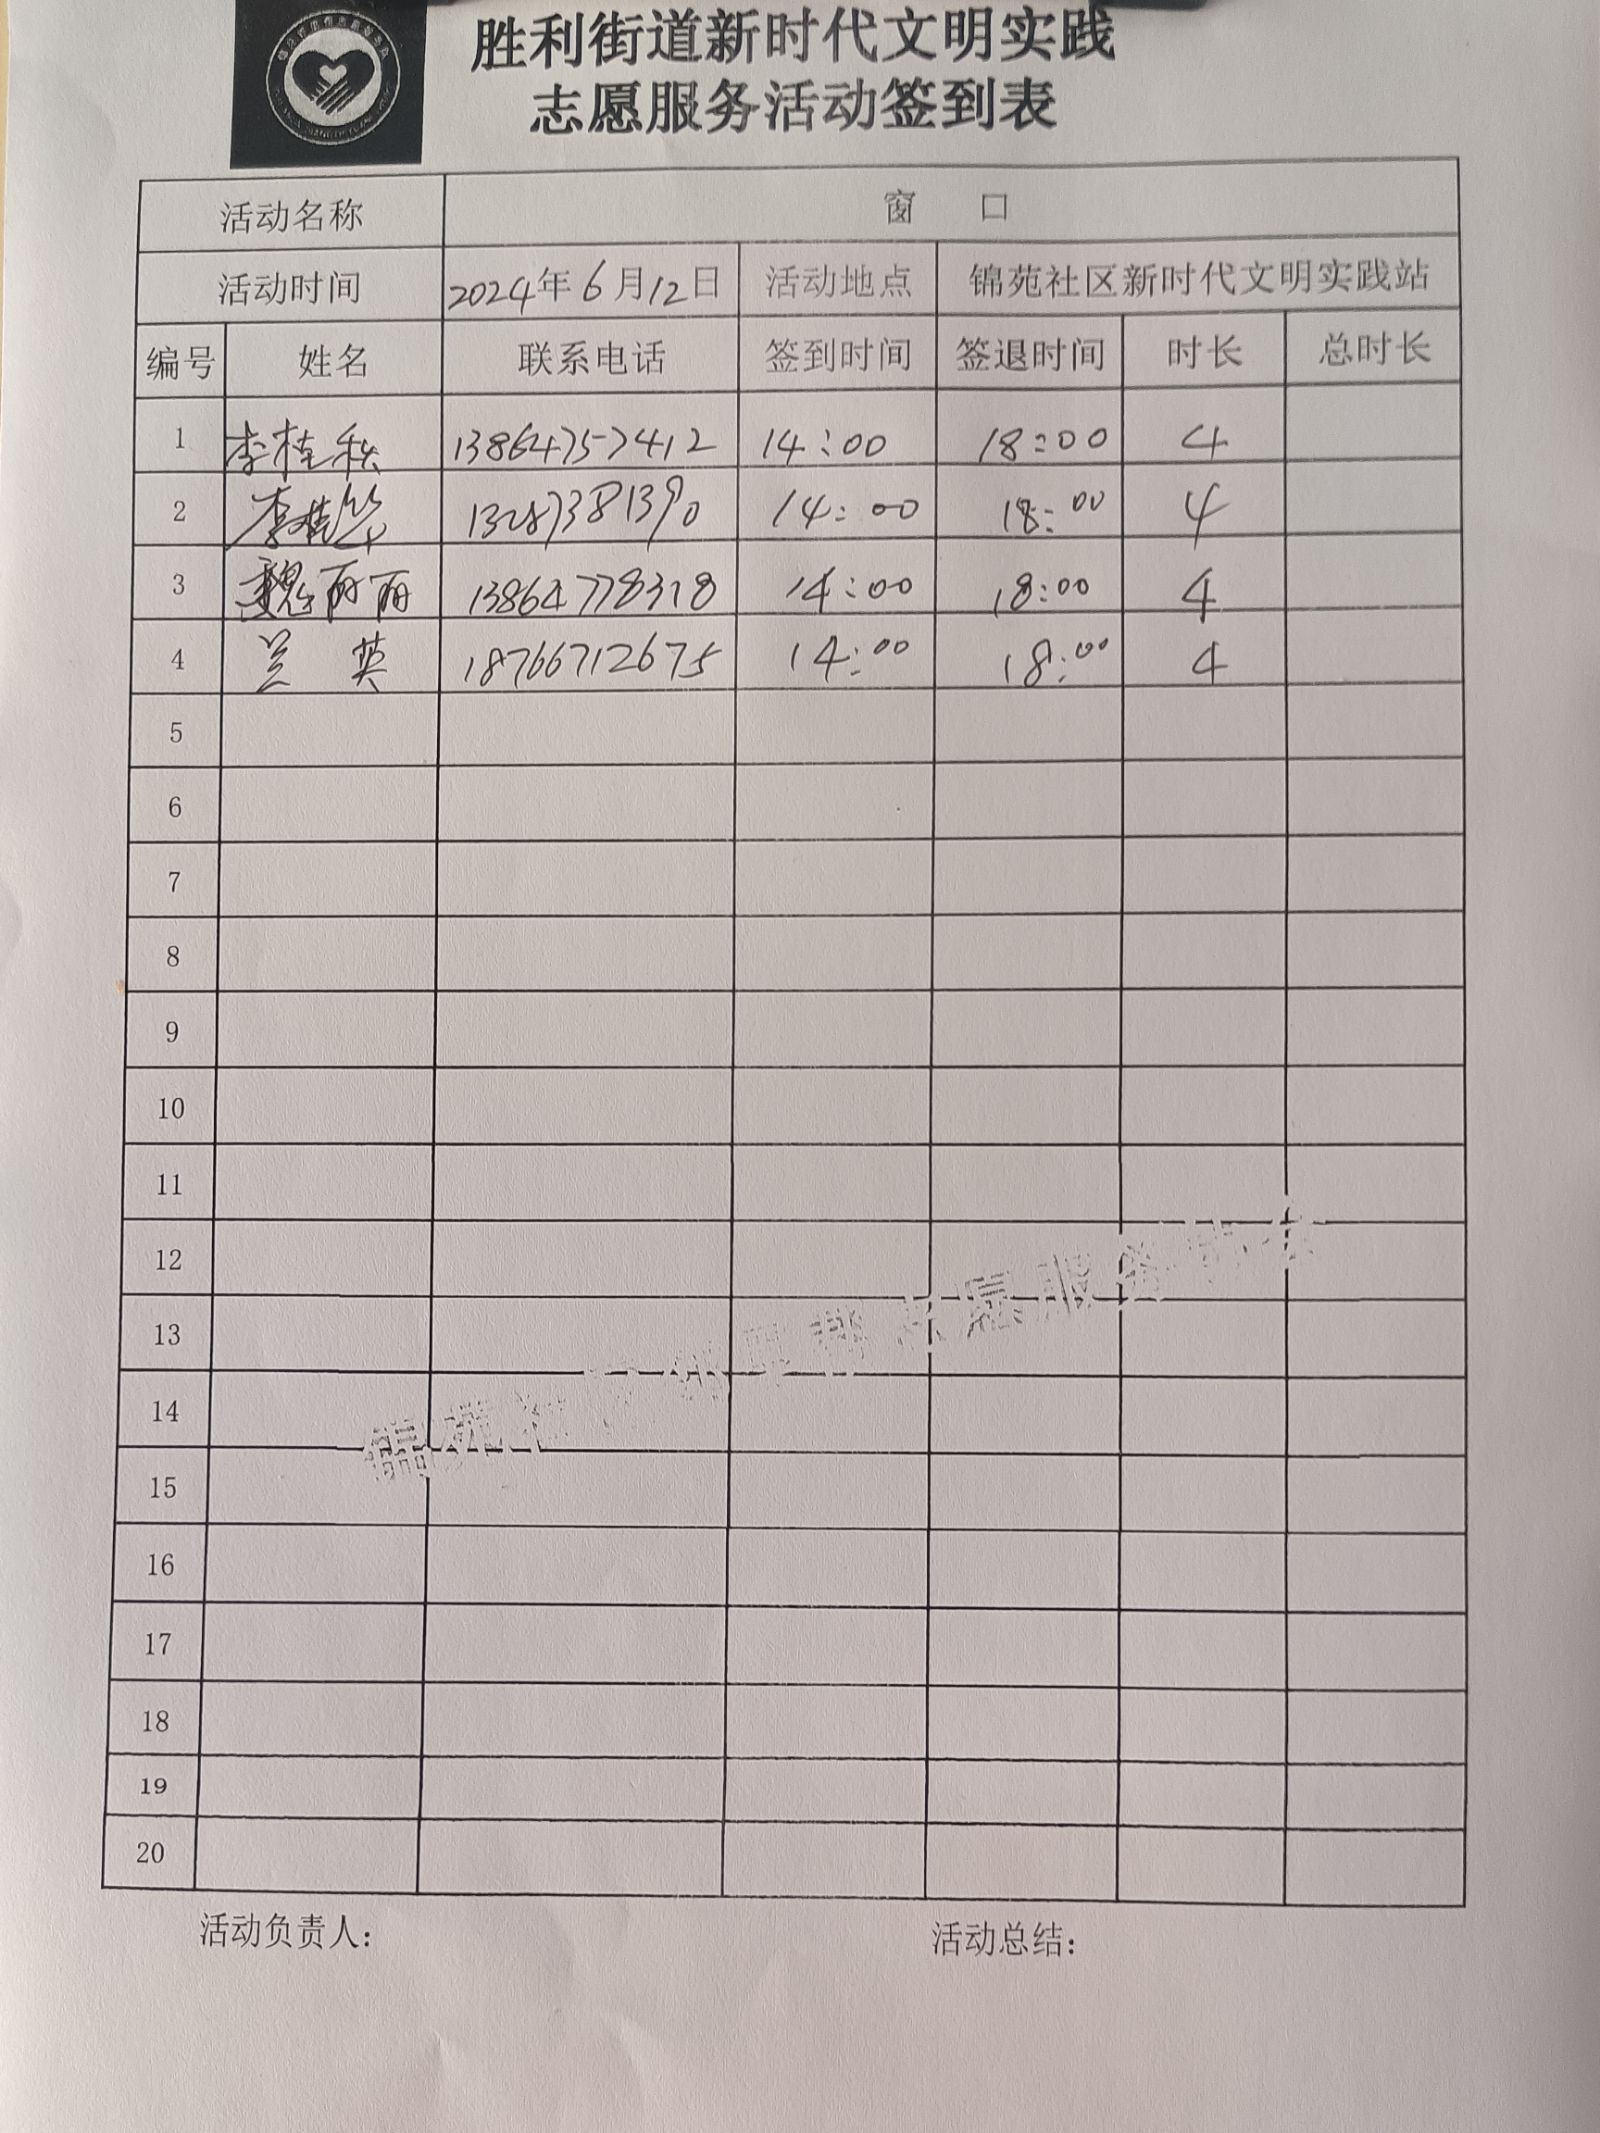 胜利街道新时代文明实践
志愿服务活动签到表
活动名称 窗 口
活动时间 2024年6月12日 活动地点 锦苑社区新时代文明实践站
编号 姓名 联系电话 签到时间 签退时间 时长 总时长
1 李桂秋 13864757412 14:00 18:00 4
2 李桂华 13287381390 14:00 18:00 4
3 魏丽丽 13864778318 14:00 18:00 4
4 兰英 18766712675 14:00 18:00 4
5
6
7
8
9
10
11
12
13
14
15
16
17
18
19
20
活动负责人: 活动总结: